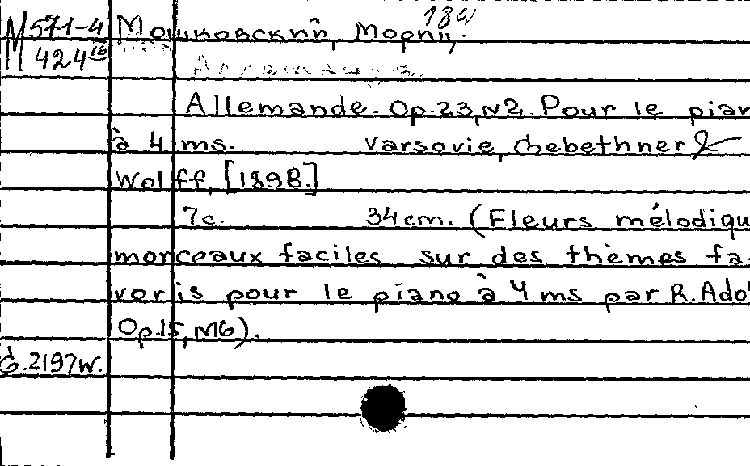 М 571-4 Мошковский, Мориц.
424
Allemande. Op.23, N2. Pour le pian
à 4 ms. Varsovie, Chebethner &
Wolff, [1898.]
7c. 34cm. (Fleurs mélodiqu
morceaux faciles sur des thèmes fa-
voris pour le piano à 4 ms par R. Ado
Op.15, N6).
G.2197W.